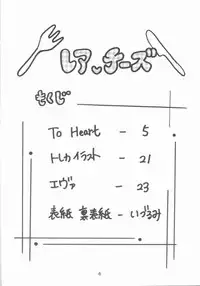 レア♥チーズ
もくじ
To Heart - 5
トレカイラスト - 21
エヴァ - 23
表紙 裏表紙 - いづるみ